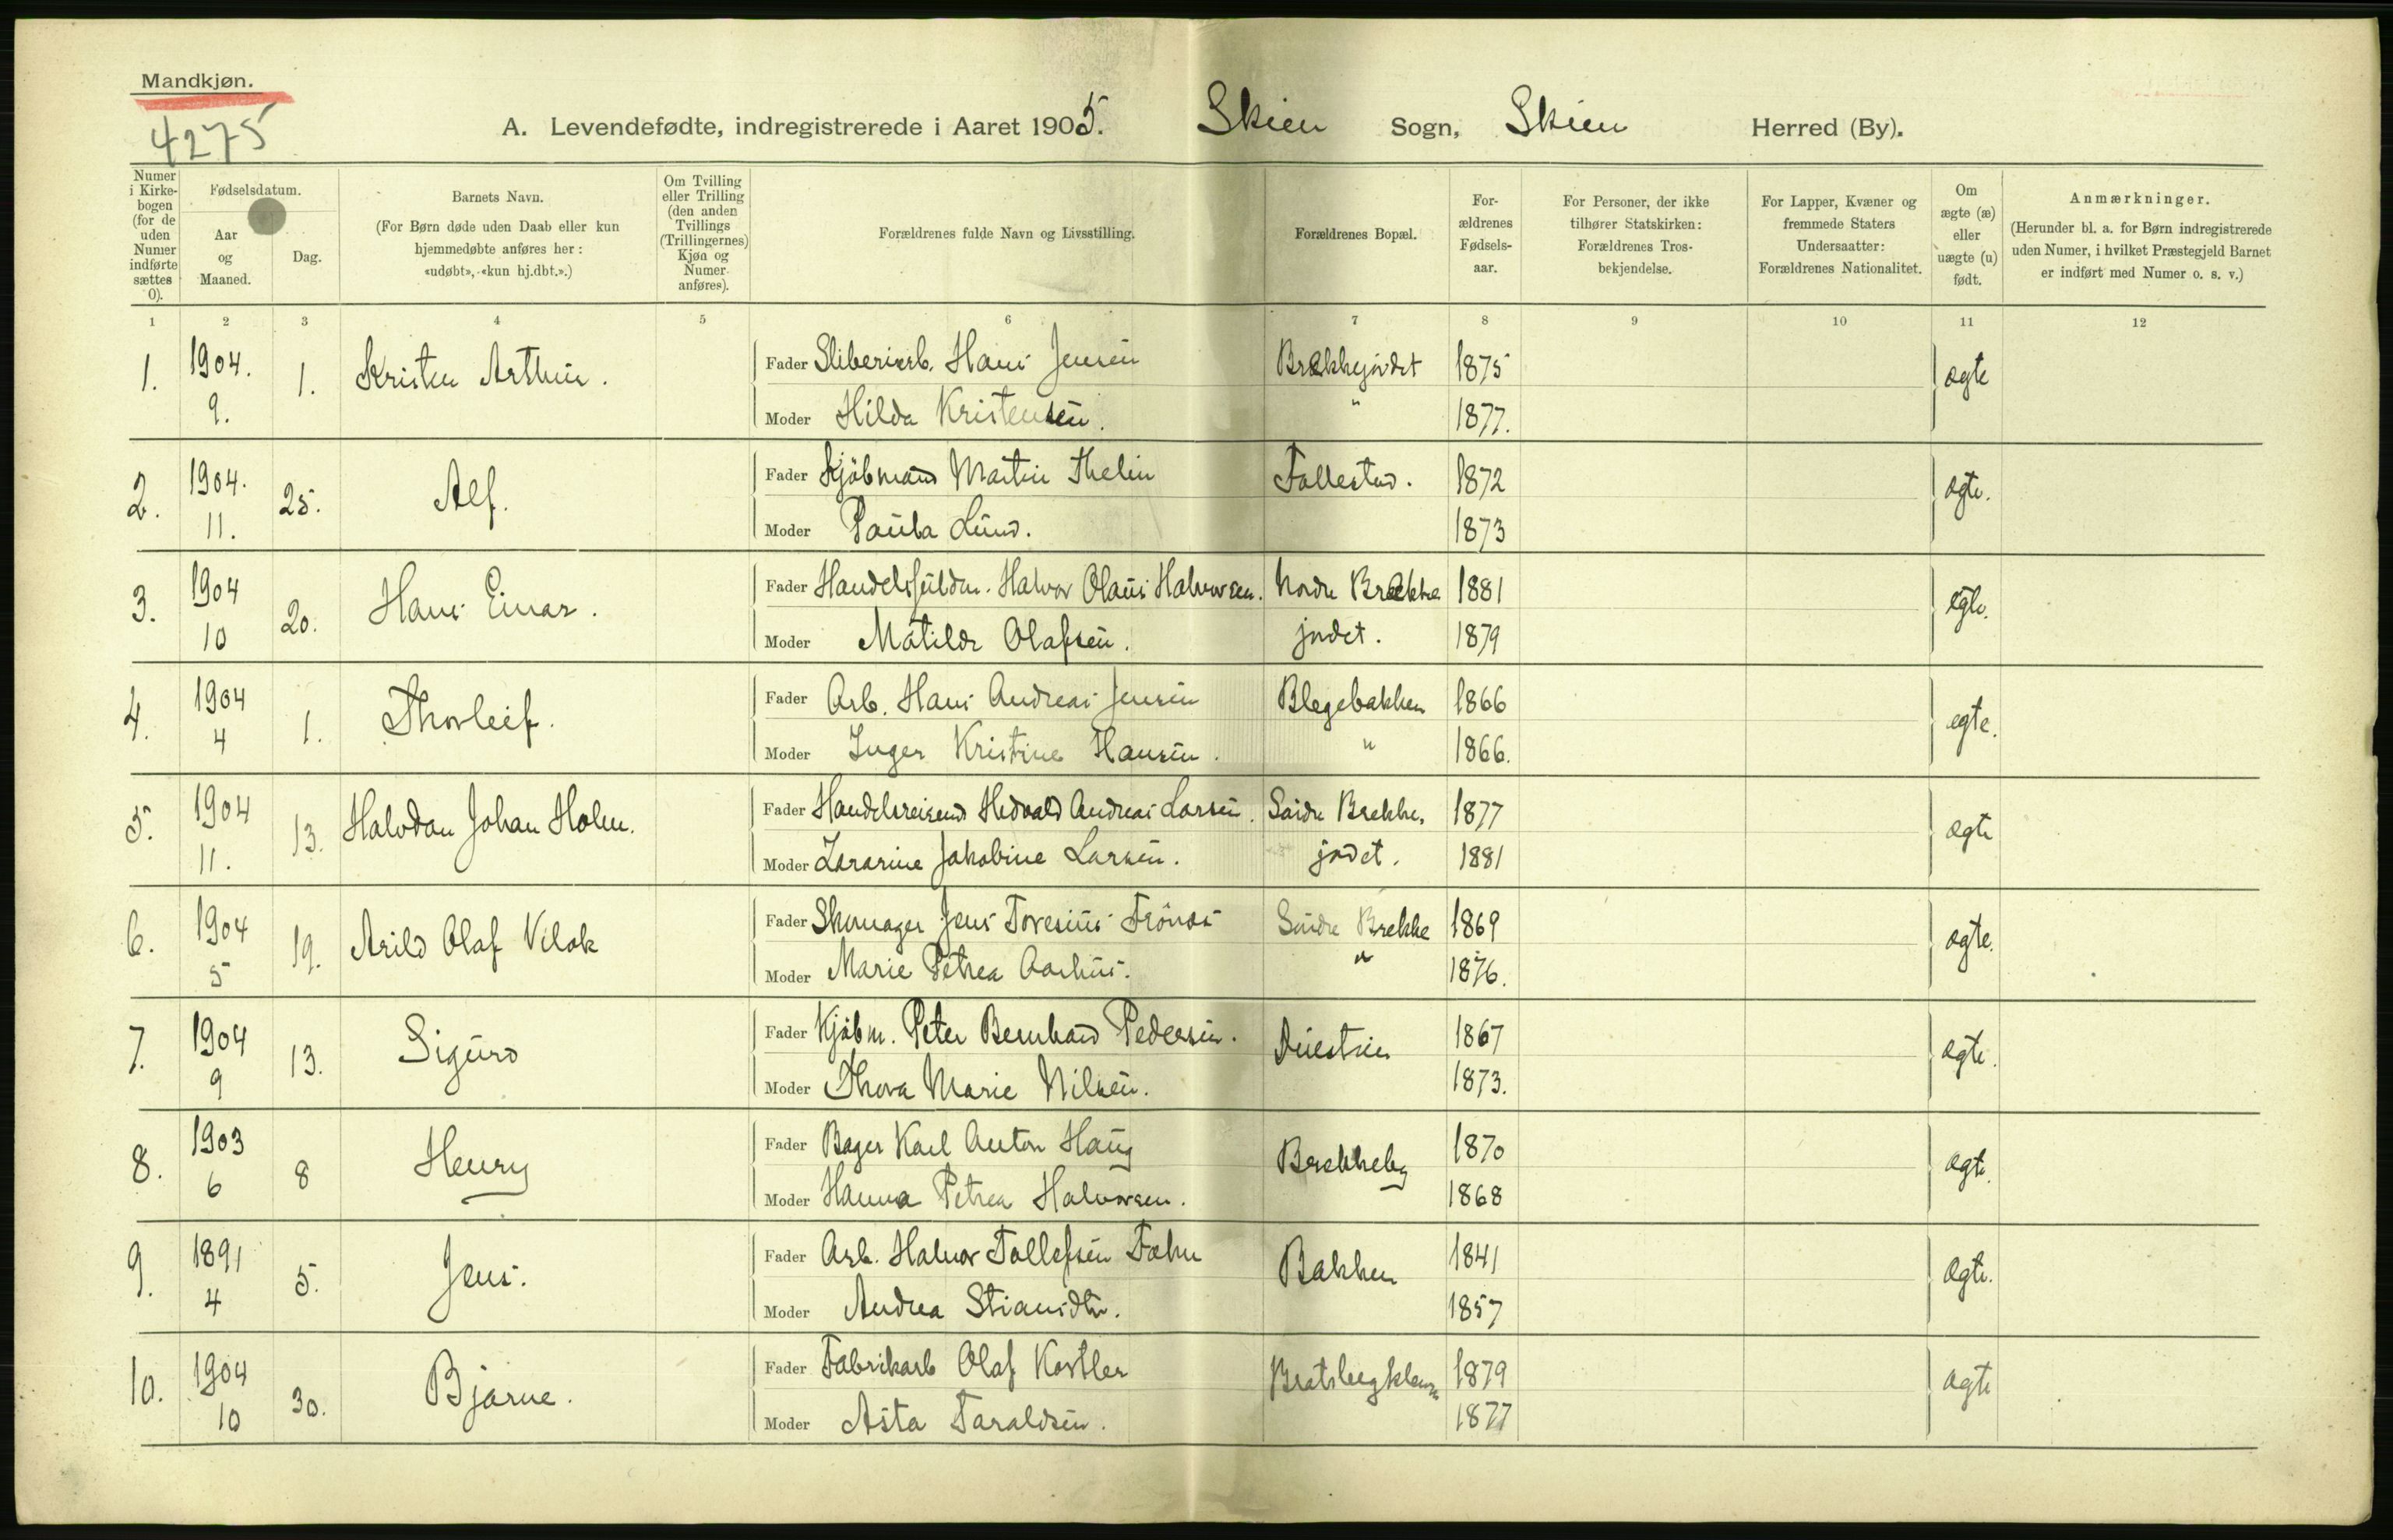 Mandkjøn.
4275
A. Levendefødte, indregistrerede i Aaret 1905. Skien Sogn, Skien Herred (By).
Numer i Kirkebogen (for de uden Numer indførte sættes 0).
Fødselsdatum.
Aar og Maaned.
Dag.
Barnets Navn.
(For Børn døde uden Daab eller kun hjemmedøbte anføres her: «udøbt», «kun hj.dbt.».)
Om Tvilling eller Trilling (den anden Tvillings (Trillingernes) Kjøn og Numer anføres).
Forældrenes fulde Navn og Livsstilling.
Forældrenes Bopæl.
Forældrenes Fødselsaar.
For Personer, der ikke tilhører Statskirken: Forældrenes Trosbekjendelse.
For Lapper, Kvæner og fremmede Staters Undersaatter: Forældrenes Nationalitet.
Om ægte (æ) eller uægte (u) født.
Anmærkninger.
(Herunder bl. a. for Børn indregistrerede uden Numer, i hvilket Præstegjeld Barnet er indført med Numer o. s. v.)
1 2 3 4 5 6 7 8 9 10 11 12
1. 1904. 9. 1. Kristen Arthur. Fader Sliberiarb. Hans Jensen Brekkejordet 1875 ægte
Moder Hilda Kristensen. " 1877.
2. 1904. 11. 25. Alf. Fader Kjöbmand Martin Thelin Follestad. 1872 ægte.
Moder Paula Lund. 1873
3. 1904 10 20. Hans Einar. Fader Handelsfuldm. Halvor Olaus Halvorsen. Nordre Brekke 1881 egte.
Moder Matilde Olafsen. jordet. 1879
4. 1904 4 1. Thorleif. Fader Arb. Hans Andreas Jensen Blegebakken 1866 egte.
Moder Inger Kristine Hansen. " 1866.
5. 1904 11. 13. Halvdan Johan Holm. Fader Handelsreisend Hedvald Andreas Larsen. Søndre Brekke 1877 ægte
Moder Zararine Jakobine Larsen. jordet. 1881
6. 1904 5 19. Arild Olaf Vilok Fader Skomager Jens Toresius Trönnes Søndre Brekke 1869 ægte.
Moder Marie Petrea Aarhus. " 1876.
7. 1904 9 13. Sigurd Fader Kjøbm. Peter Bernhard Pedersen. Duestien 1867 ægte.
Moder Thora Marie Nilsen. 1873.
8. 1903 6 8 Henry Fader Bager Karl Anton Haug Brekkeby 1870 ægte.
Moder Hanna Petrea Halvorsen. 1868
9. 1891 4 5. Jens. Fader Arb. Halvor Tollefsen Bakken 1841 ægte.
Moder Andrea Stiansdtr. 1857
10. 1904 10 30. Bjarne. Fader Fabrikarb Olaf Kastler Bratsbergkleven 1879 ægte
Moder Asta Taraldsen. 1877